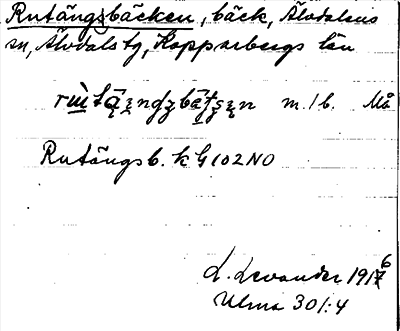 Rutängsbäcken, bäck, Älvdalens
sn, Älvdals tg, Kopparbergs län
m. 1 b. Må
Rutängsb. k G 102 NO
L. Levander 1916
Ulma 301:4